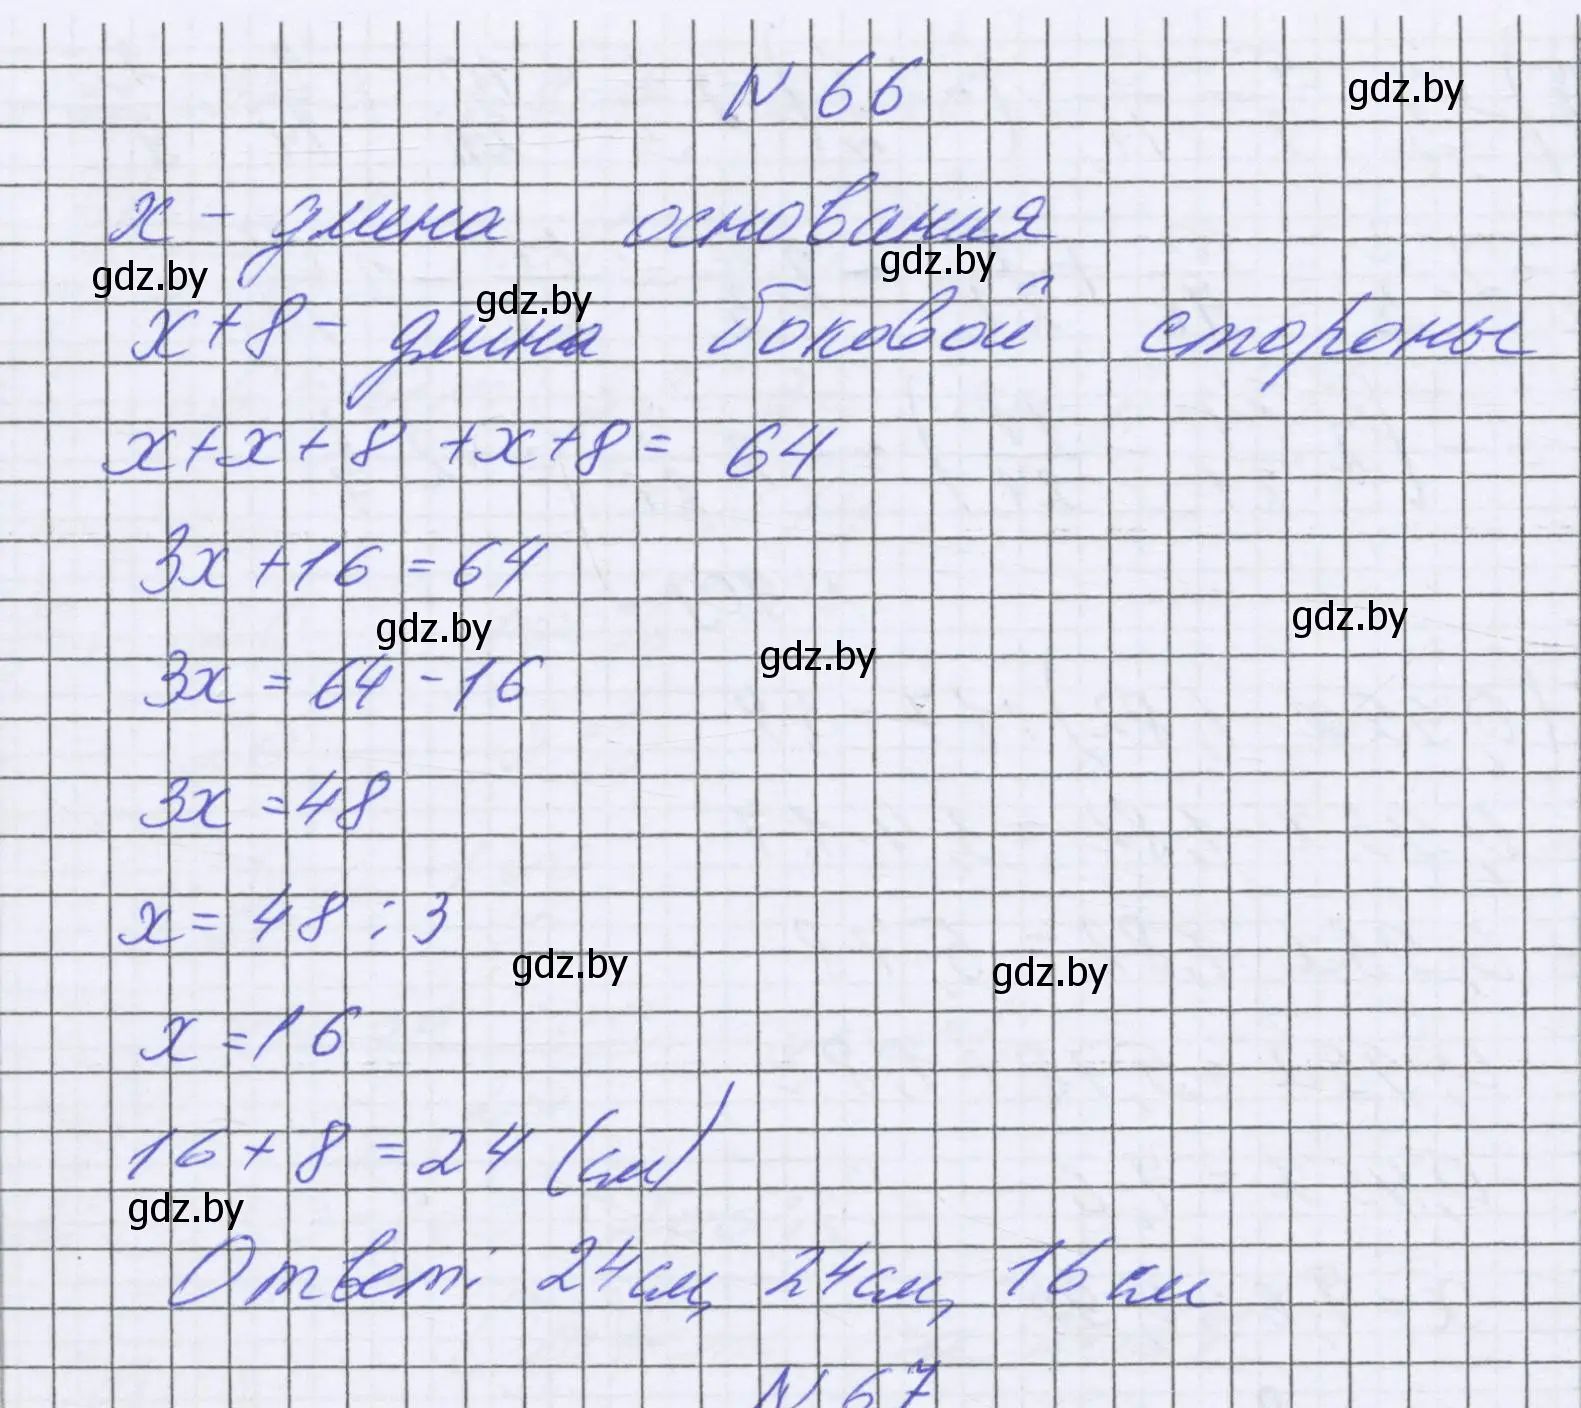 N 66
gdz.by
x - длина основания
gdz.by
gdz.by
gdz.by
x+8 - длина боковой стороны
x+x+8 +x+8 = 64
3x +16 = 64
gdz.by
gdz.by
gdz.by
3x = 64 - 16
3x = 48
x = 48 : 3
gdz.by
gdz.by
x = 16
16 + 8 = 24 (см)
gdz.by
Ответ: 24см, 24см, 16 см
N 67